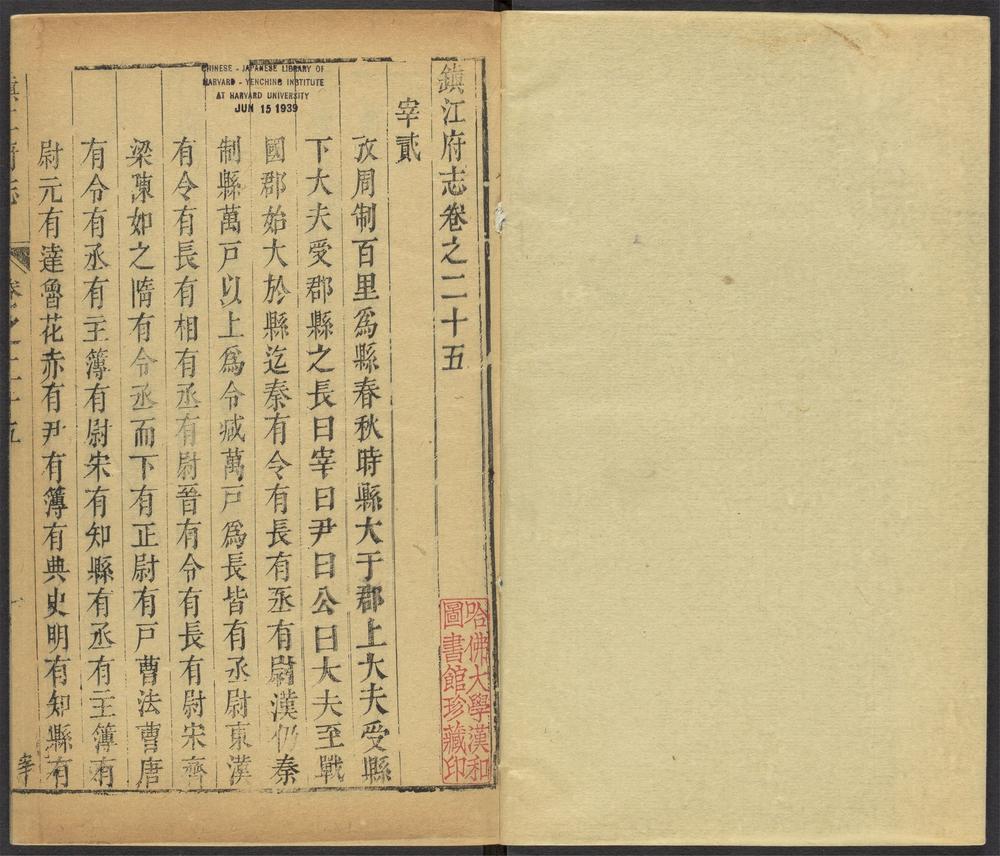 鎮江府志卷之二十五
宰貳
攷周制百里爲縣春秋時縣大于郡上大夫受縣
下大夫受郡縣之長曰宰曰尹曰公曰大夫至戰
國郡始大於縣迄秦有令有長有丞有尉漢仍秦
制縣萬戸以上爲令咸萬戸爲長皆有丞尉東漢
有令有長有相有丞有尉晉有令有長有尉宋齊
梁陳如之隋有令丞而下有正尉有戸曹法曹唐
有令有丞有主簿有尉宋有知縣有丞有主簿有
尉元有達魯花赤有尹有簿有典史明有知縣有
卷之二十五
宰
CHINESE - JAPANESE LIBRARY OF
HARVARD - YENCHING INSTITUTE
AT HARVARD UNIVERSITY
JUN 15 1939
哈佛大學漢和
圖書館珍藏印